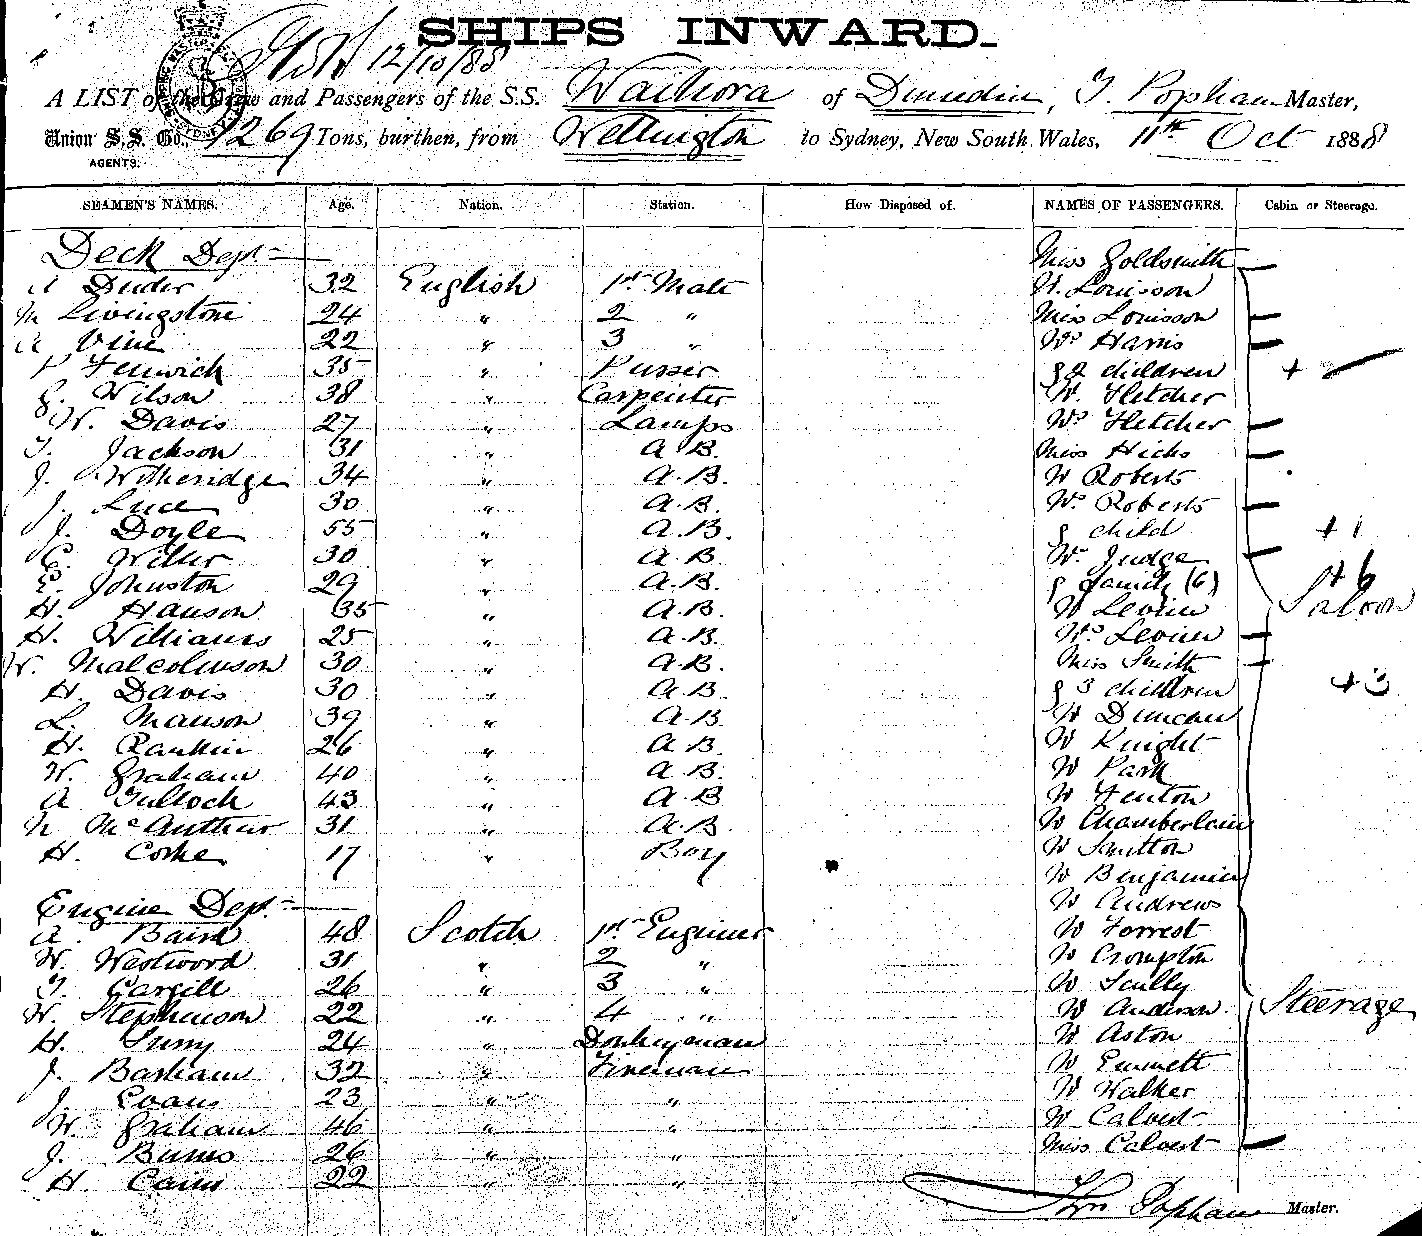 SHIPS INWARD.
12/10/88
A LIST of the Crew and Passengers of the S.S. Waihora of Dunedin, T. Popham Master,
Union S.S. Co., 1269 Tons, burthen, from Wellington to Sydney, New South Wales, 11th Oct 1888
AGENTS.
SEAMEN'S NAMES. Age. Nation. Station. How Disposed of. NAMES OF PASSENGERS. Cabin or Steerage.
Deck Dept Miss Goldsmith
A Duder 32 English 1st Mate W. Louisson
M Livingstone 24 " 2 " Miss Louisson
A Vine 22 " 3 " Mrs Harris
P Fenwick 35 " Purser & 2 children +
G. Wilson 38 " Carpenter W. Fletcher
W. Davis 27 " Lamps Mrs Fletcher
T. Jackson 31 " A.B. Miss Hicks
J. Witheridge 34 " A.B. Mr Roberts
J. Luce 30 " A.B. Mrs Roberts
J. Doyle 55 " A.B. & child +1
C. Willer 30 " A.B. Mr Judge
E. Johnston 29 " A.B. & family (6) +6
H. Hanson 35 " A.B. Mr Levien Saloon
H. Williams 25 " A.B. Mrs Levien
W. Malcolmson 30 " A.B. Miss Smith
H. Davis 30 " A.B. & 3 children +3
L. Manson 39 " A.B. Mr Duncan
H. Rankin 26 " A.B. Mr Knight
W. Graham 40 " A.B. Mr Park
A Tulloch 43 " A.B Mr Fenton
N McArthur 31 " A.B. Mr Chamberlain
H. Corke 17 " Boy Mr Smitton
Mr Benjamin
Engine Dept. Mr Andrews
A. Baird 48 Scotch 1st Engineer Mr Forrest
W. Westwood 31 " 2 " Mr Crompton
T. Cargill 26 " 3 " Mr Scully
W. Stephenson 22 " 4 " Mr Anderson Steerage
H. 24 " Donkeyman Mr Aston
J. Barham 32 " Fireman Mr Emmett
J. Evans 23 " " Mr Walker
W. Graham 46 " " Mr Calvert
J. Burns 26 " " Miss Calvert
H. Cairns 22 " "
Popham Master.